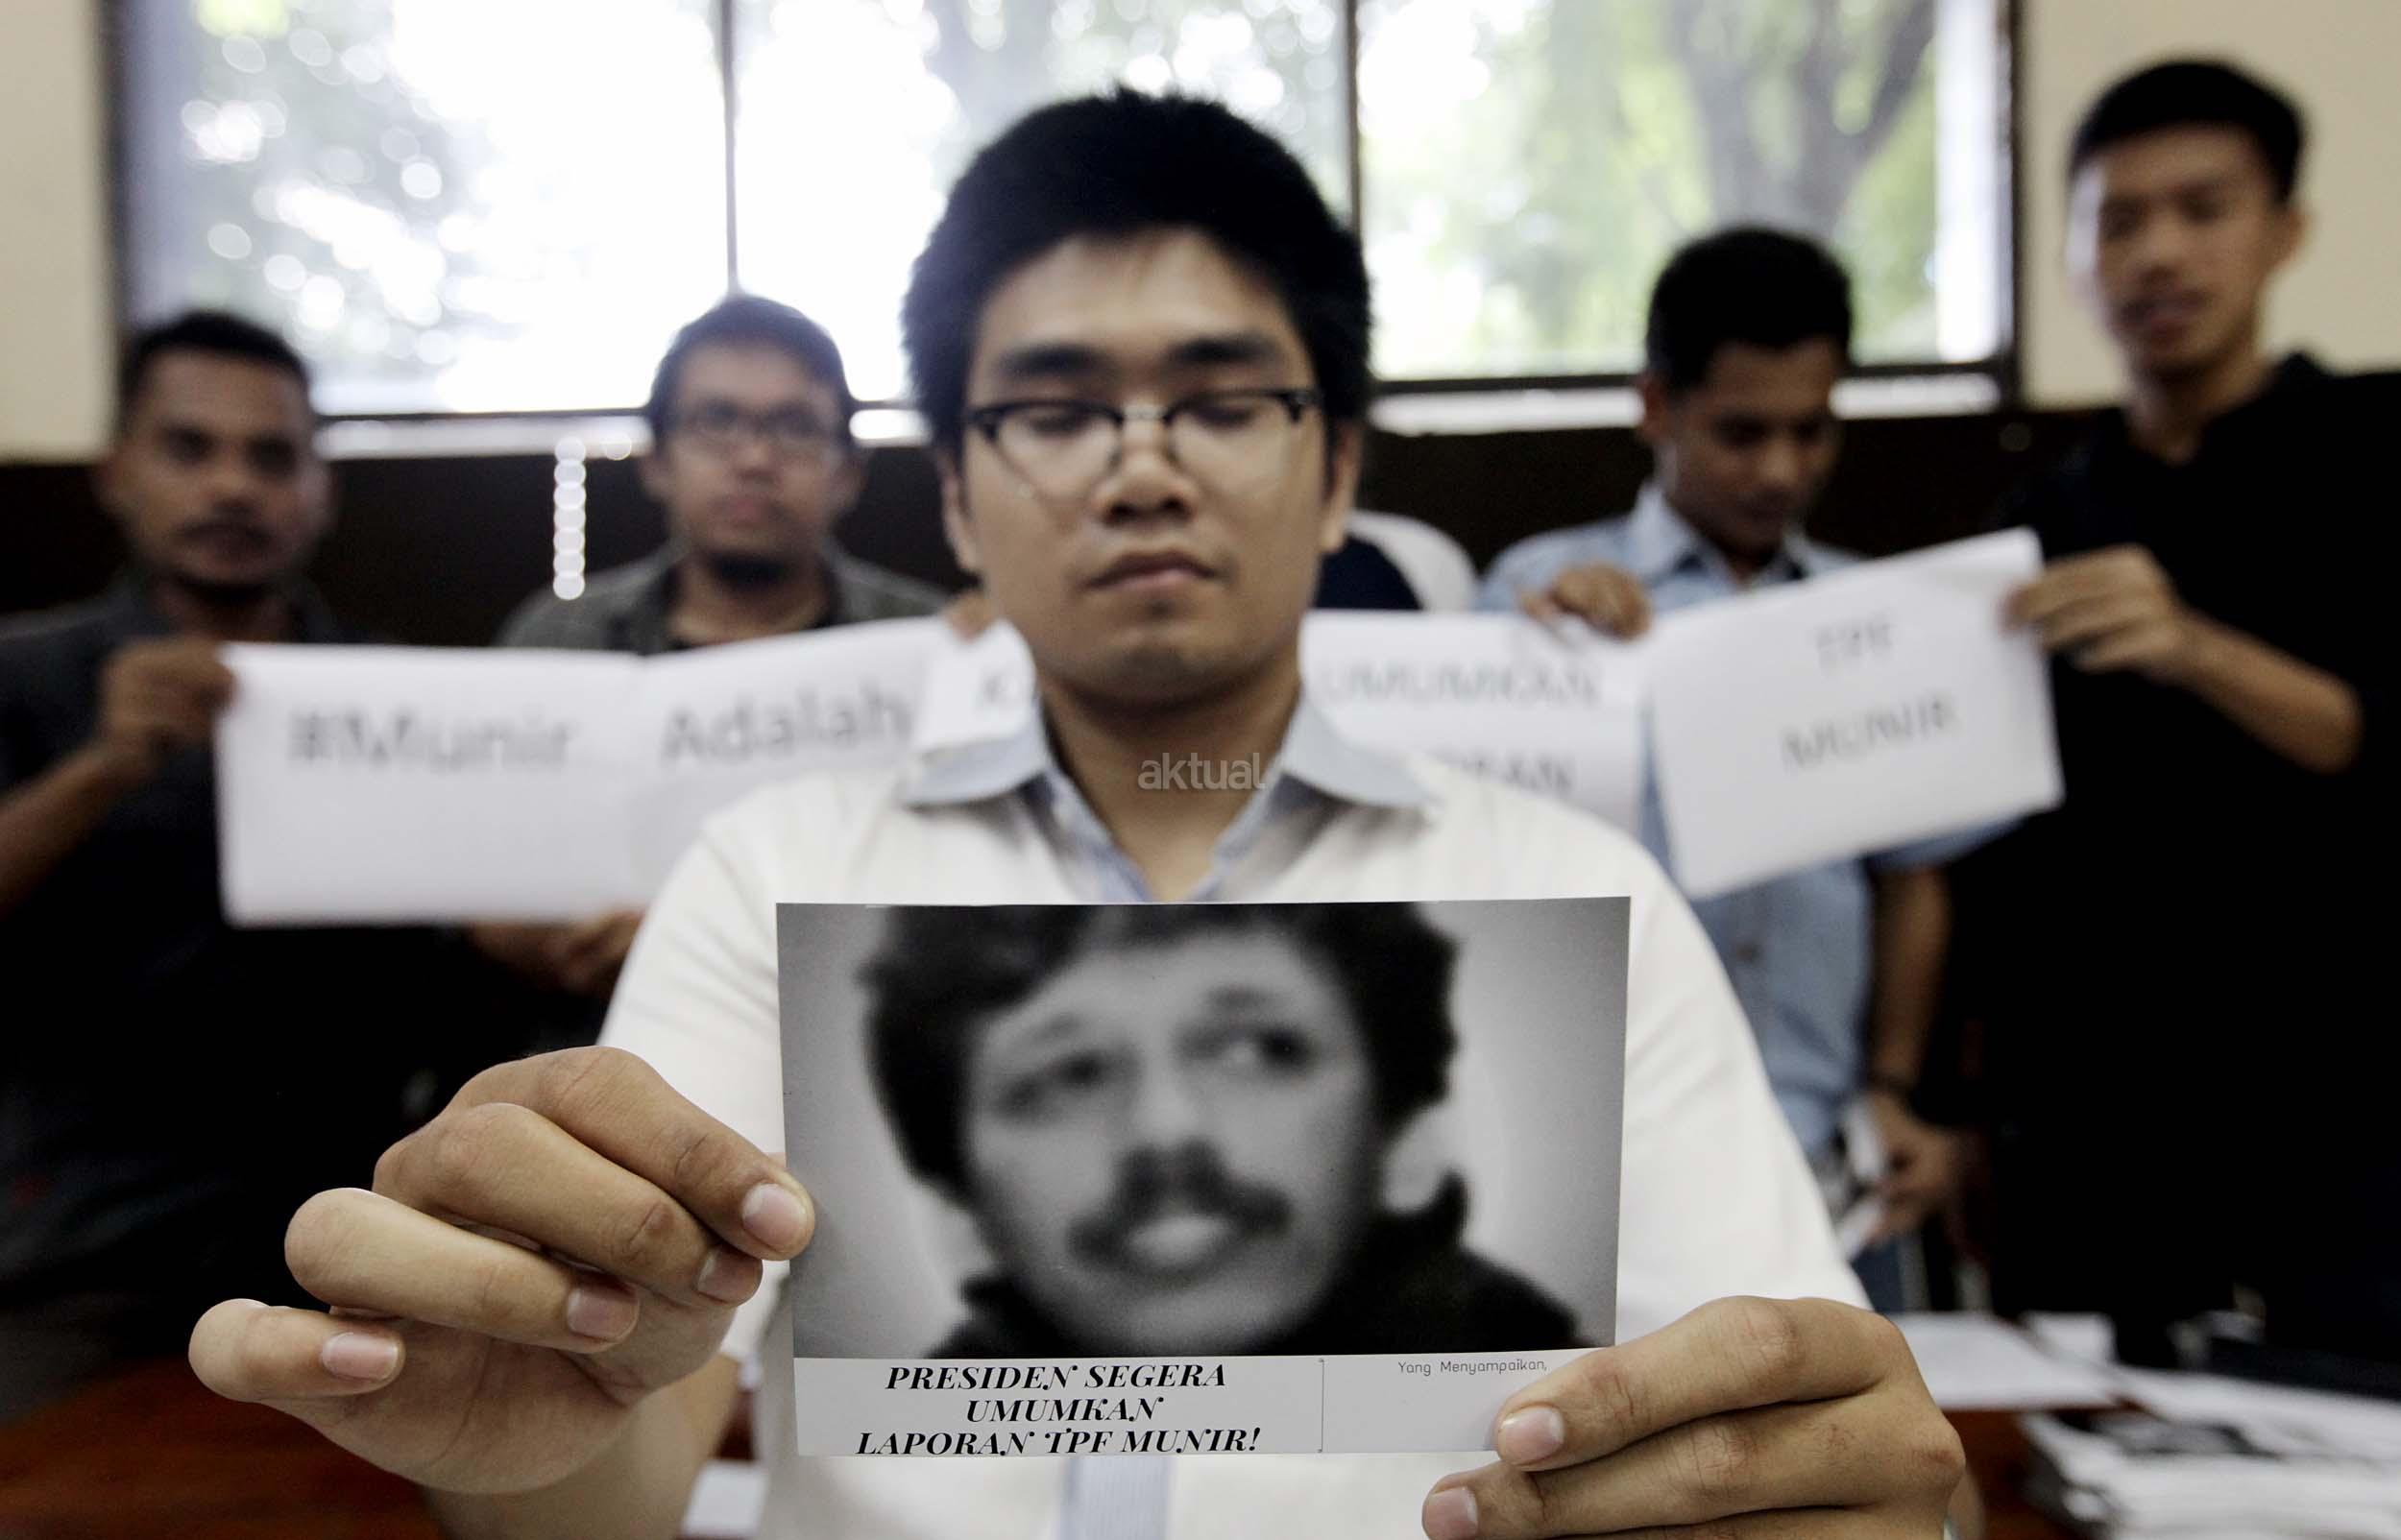 #Munir Adalah
UMUMKAN
TPF
MUNIR
aktual
PRESIDEN SEGERA
UMUMKAN
LAPORAN TPF MUNIR!
Yang Menyampaikan,